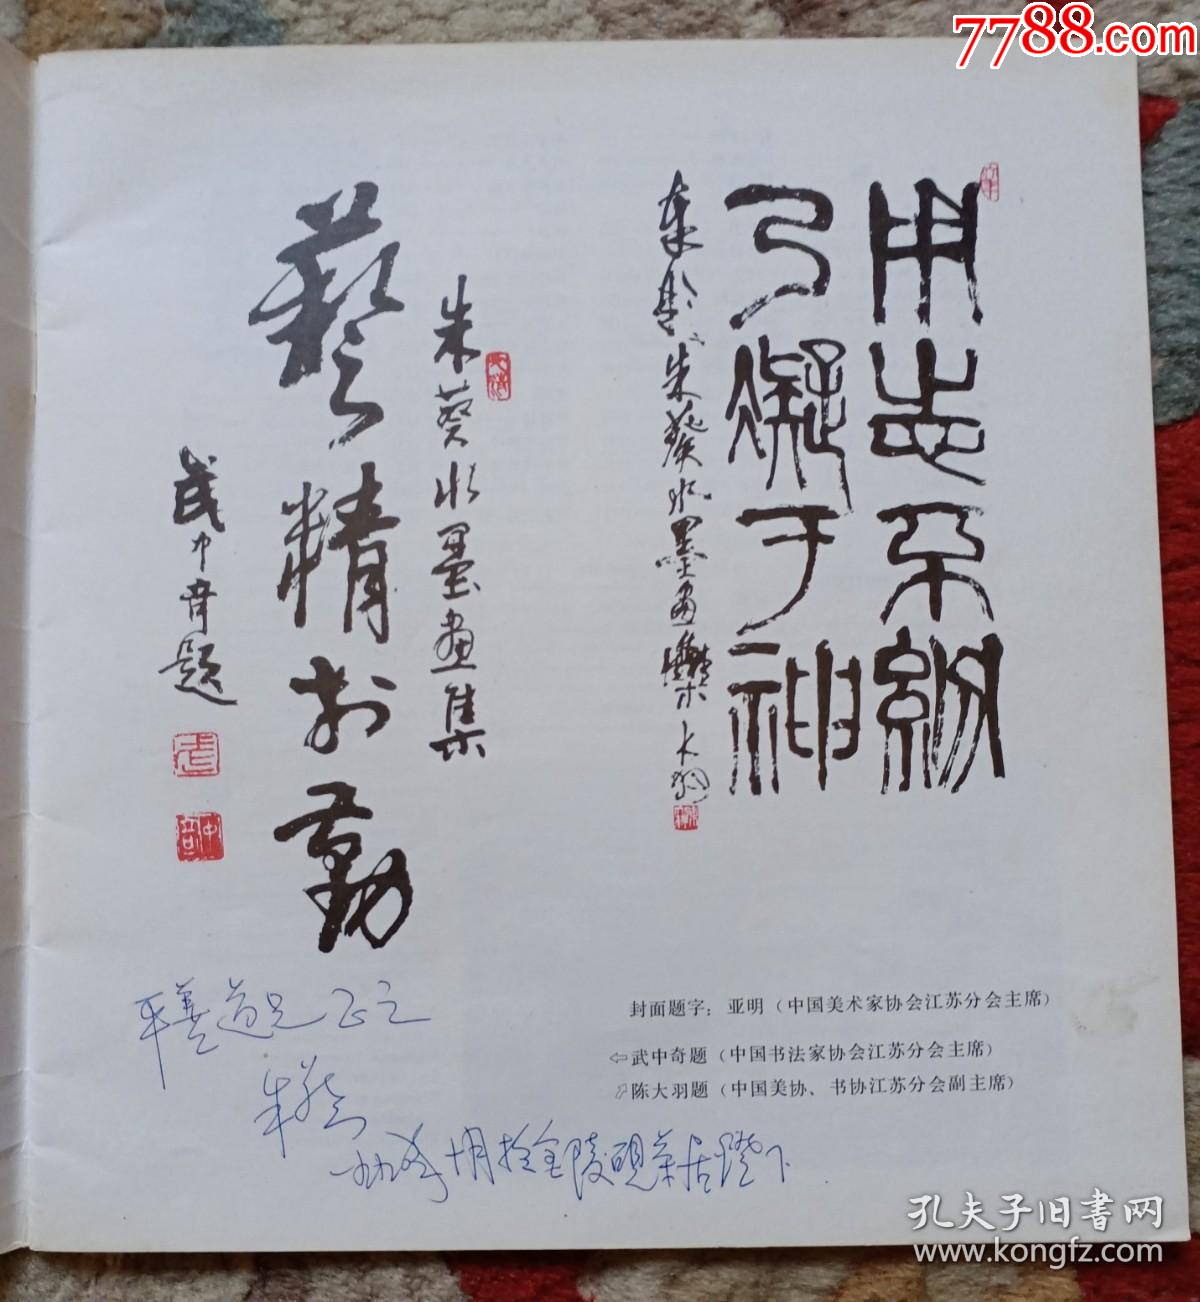 7788.com
用志不纷
乃凝于神
朱葵水墨画
大羽
朱葵水墨画集
藝精於勤
武中奇题
封面题字：亚明（中国美术家协会江苏分会主席）
⇦武中奇题（中国书法家协会江苏分会主席）
⇗陈大羽题（中国美协、书协江苏分会副主席）
平善道兄正之
朱葵
孔夫子旧书网
www.kongfz.com